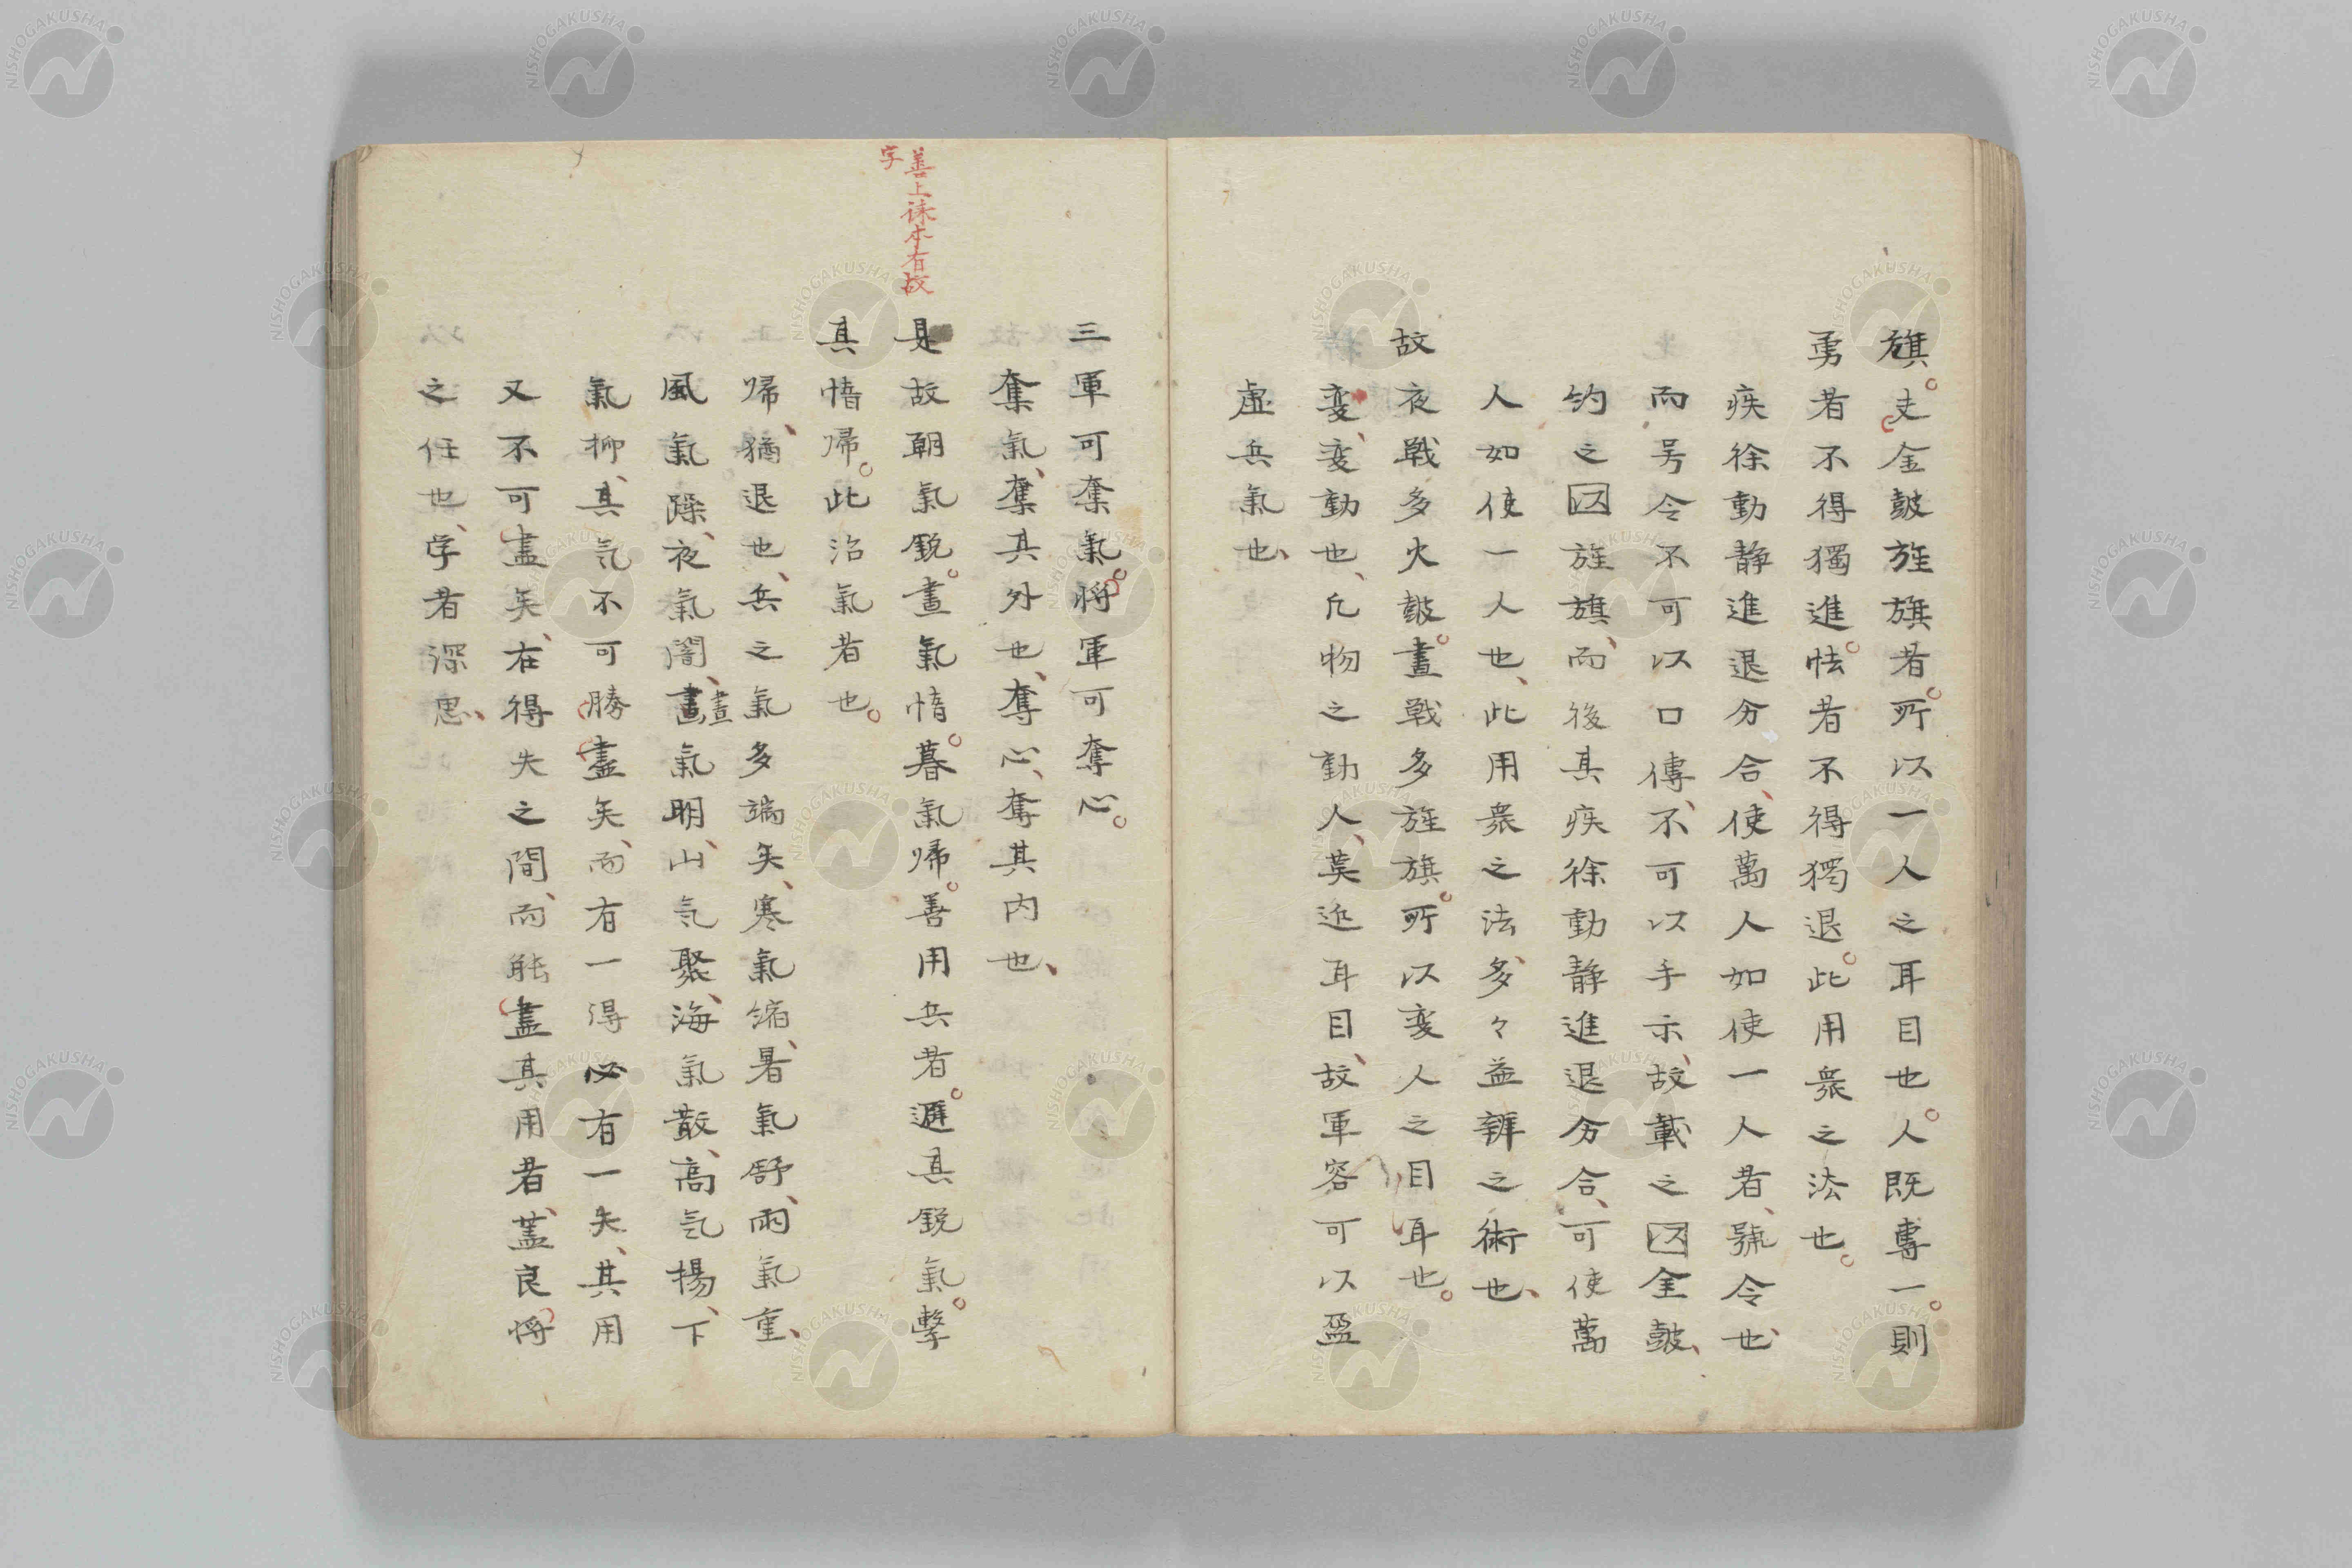 旗夫金鼓旌旗者所以一人之耳目也人既專一則
勇者不得獨進怯者不得獨退此用衆之法也
疾徐動静進退分合使萬人如使一人者號令也
而号令不可以口傳不可以手示故載之以金鼓
釣之以旌旗而後其疾徐動静進退分合可使萬
人如使一人也此用衆之法多々益辨之術也
故夜戰多火鼓晝戰多旌旗所以変人之目耳也
変変動也凡物之動人莫近耳目故軍容可以盈
虚兵氣也
三軍可奪氣将軍可奪心
奪氣奪其外也奪心奪其内也
善上諌本有故
字
是故朝氣銳晝氣惰暮氣帰善用兵者避其銳氣擊
其惰帰此治氣者也
帰猶退也兵之氣多端矣寒氣縮暑氣舒雨氣重
風氣躁夜氣闇晝氣明山氣聚海氣散高気揚下
晝
氣抑其気不可勝盡矣而有一得必有一失其用
又不可盡矣在得失之間而能盡其用者蓋良将
之任也学者深思
NISHOGAKUSHA